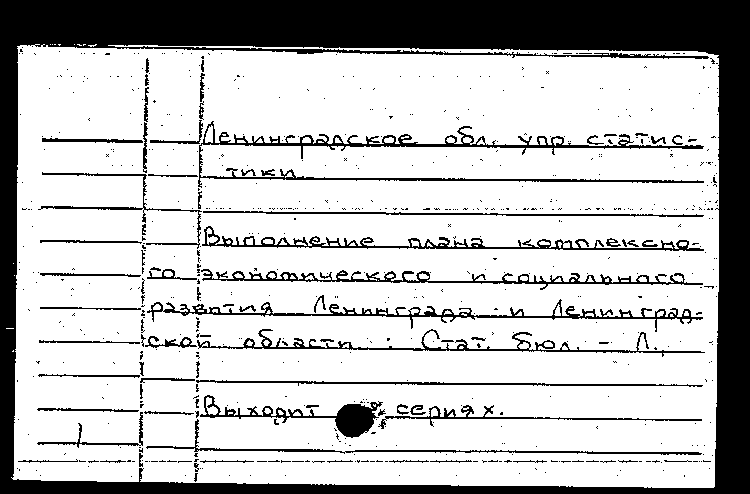 Ленинградское обл. упр. статис-
тики
Выполнение плана комплексно-
го экономического и социального
развития Ленинграда и Ленинград-
ской области : Стат. бюл. - Л.,
Выходит сериях.